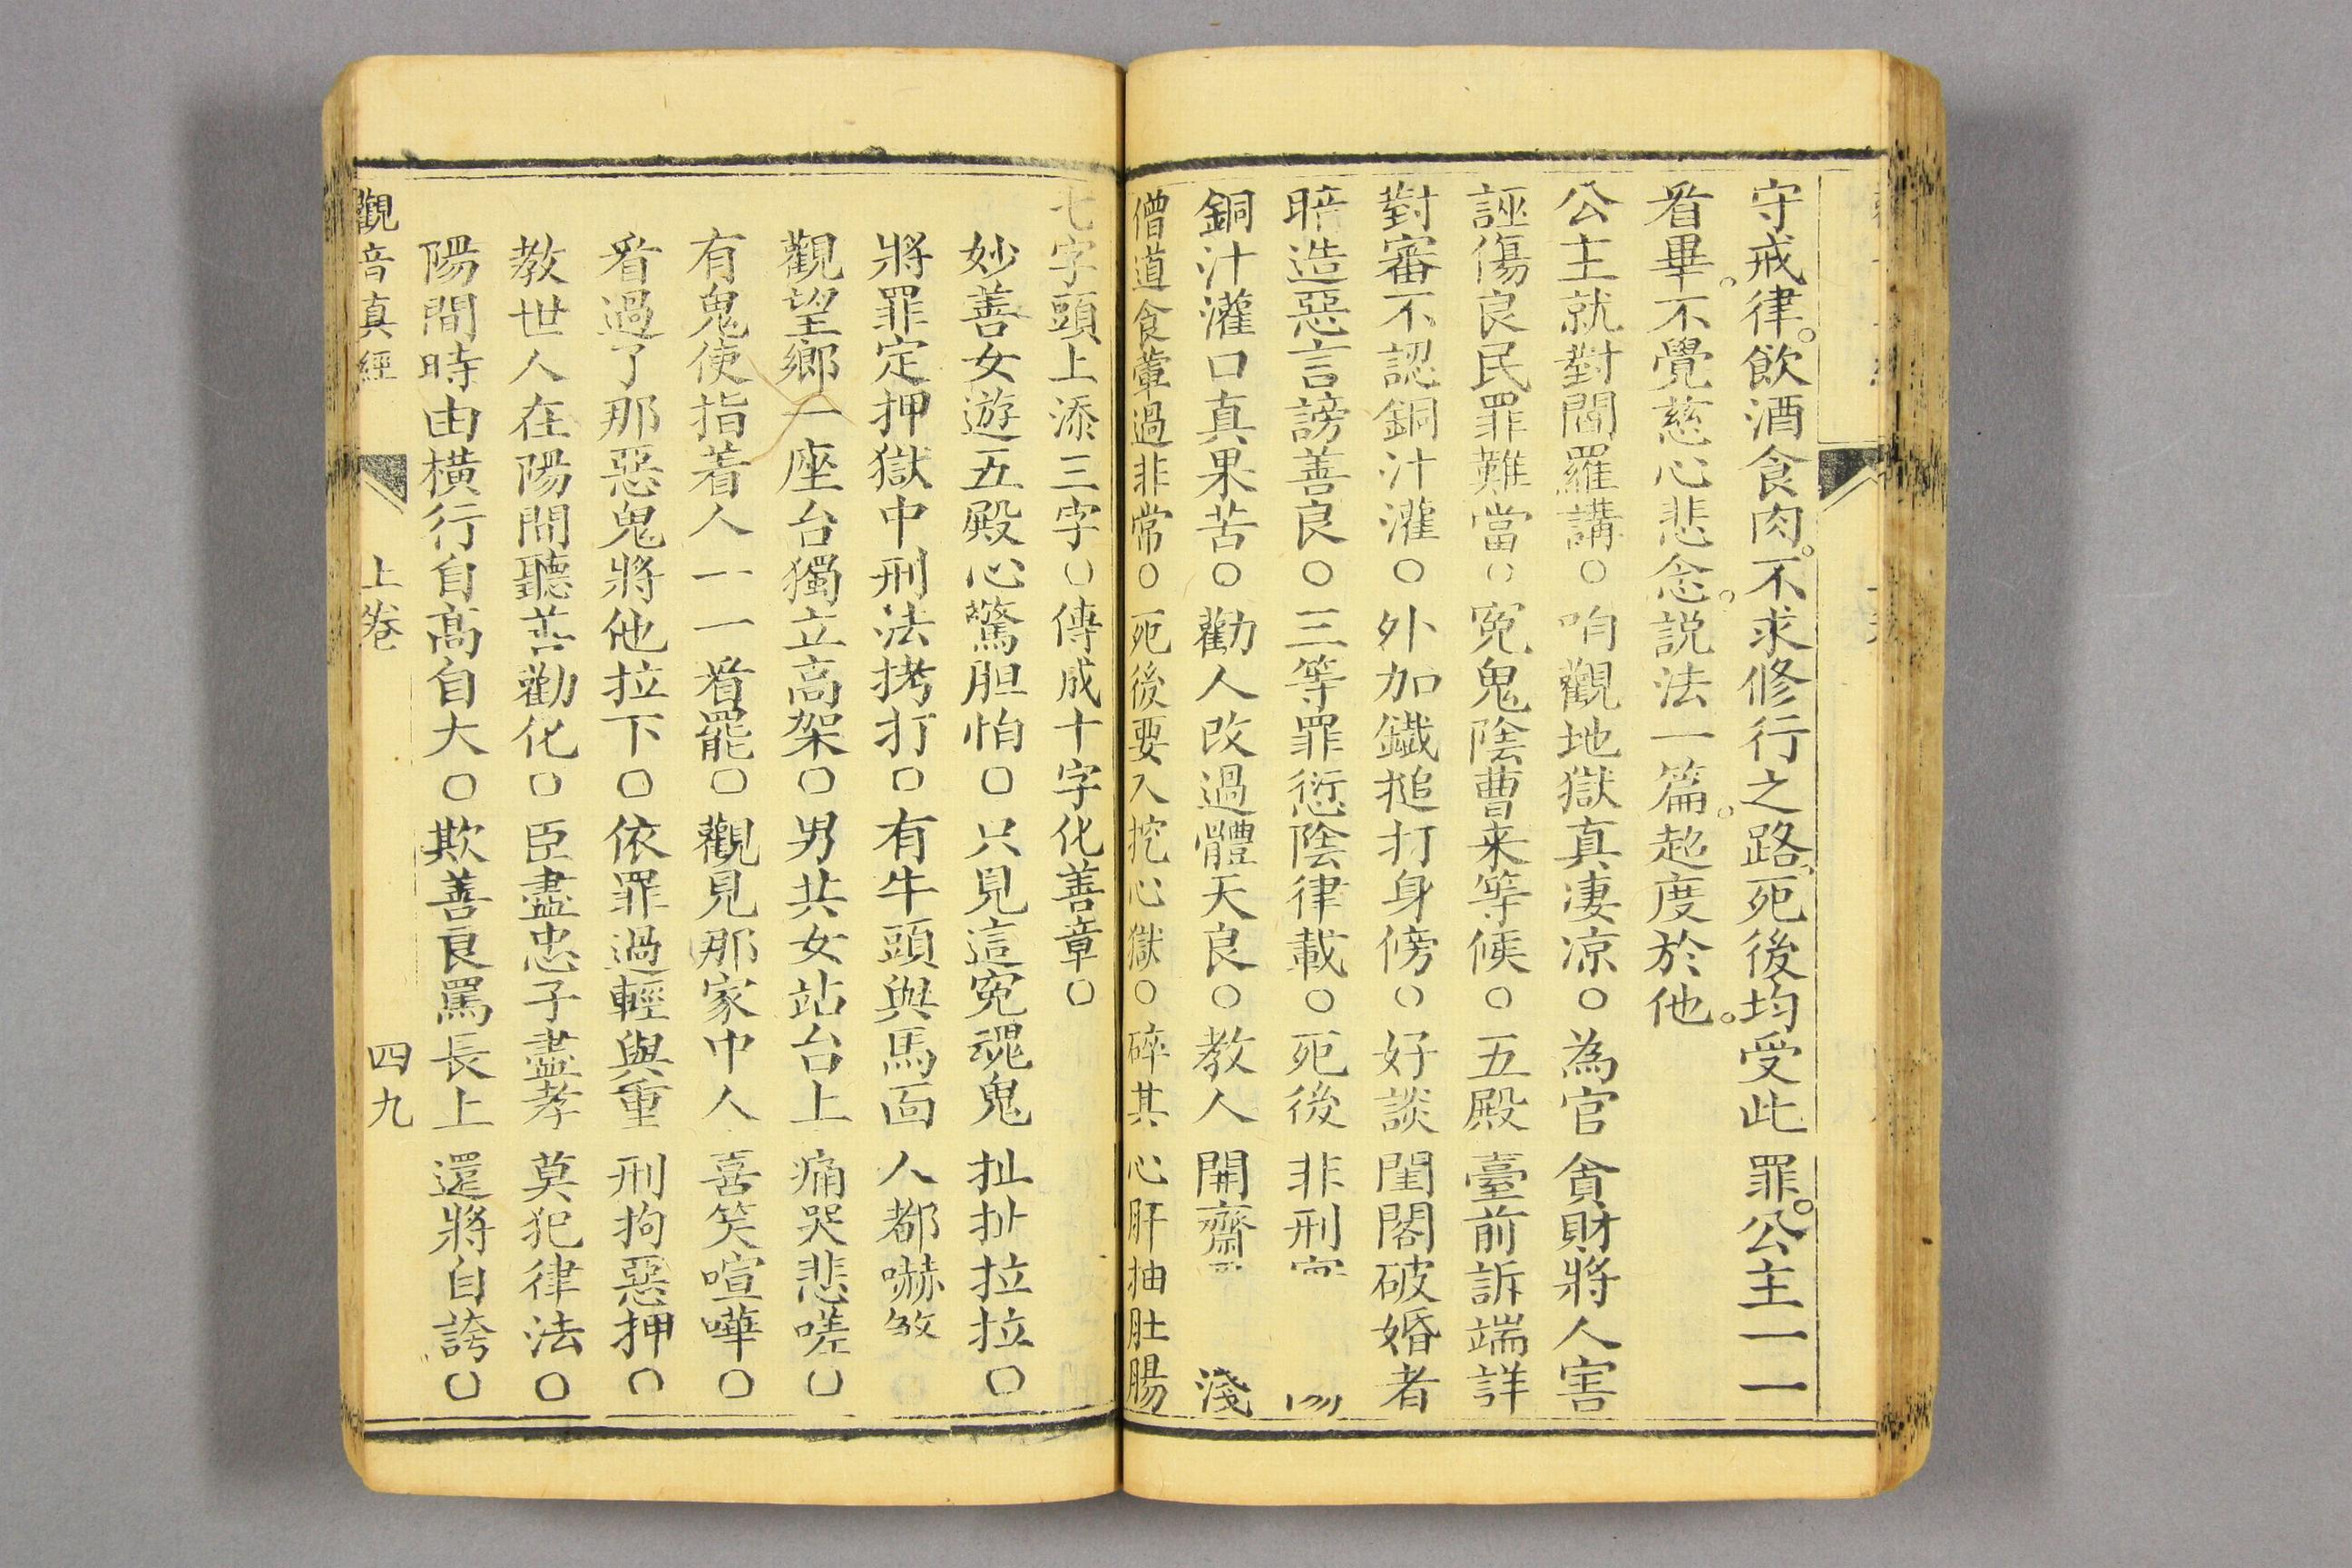 守戒律。飲酒食肉。不求修行之路、死後均受此罪。公主一一
看畢。不覺慈心悲念。説法一篇。超度於他。
公主就對閻羅講○咱觀地獄真凄凉○為官貪財將人害
誣傷良民罪難當○冤鬼陰曹来等候○五殿臺前訴端詳
對審不認銅汁灌○外加鐵搥打身傍○好談閨閣破婚者
暗造惡言謗善良○三等罪愆陰律載○死後非刑
銅汁灌口真果苦○勸人改過體天良○教人開齋 淺
僧道食葷過非常○死後要入挖心獄○碎其心肝抽肚腸
七字頭上添三字○傳成十字化善章○
妙善女遊五殿心驚胆怕○只見這冤魂鬼扯扯拉拉○
將罪定押獄中刑法拷打○有牛頭與馬面人都嚇煞
觀望鄉一座台獨立高架○男共女站台上痛哭悲嗟○
有鬼使指着人一一看罷○觀見那家中人喜笑喧嘩○
看過了那惡鬼將他拉下○依罪過輕與重刑拘惡押○
教世人在陽間聽善勸化○臣盡忠子盡孝莫犯律法○
陽間時由橫行自高自大○欺善良罵長上還將自誇○
觀音真經 上卷 四九